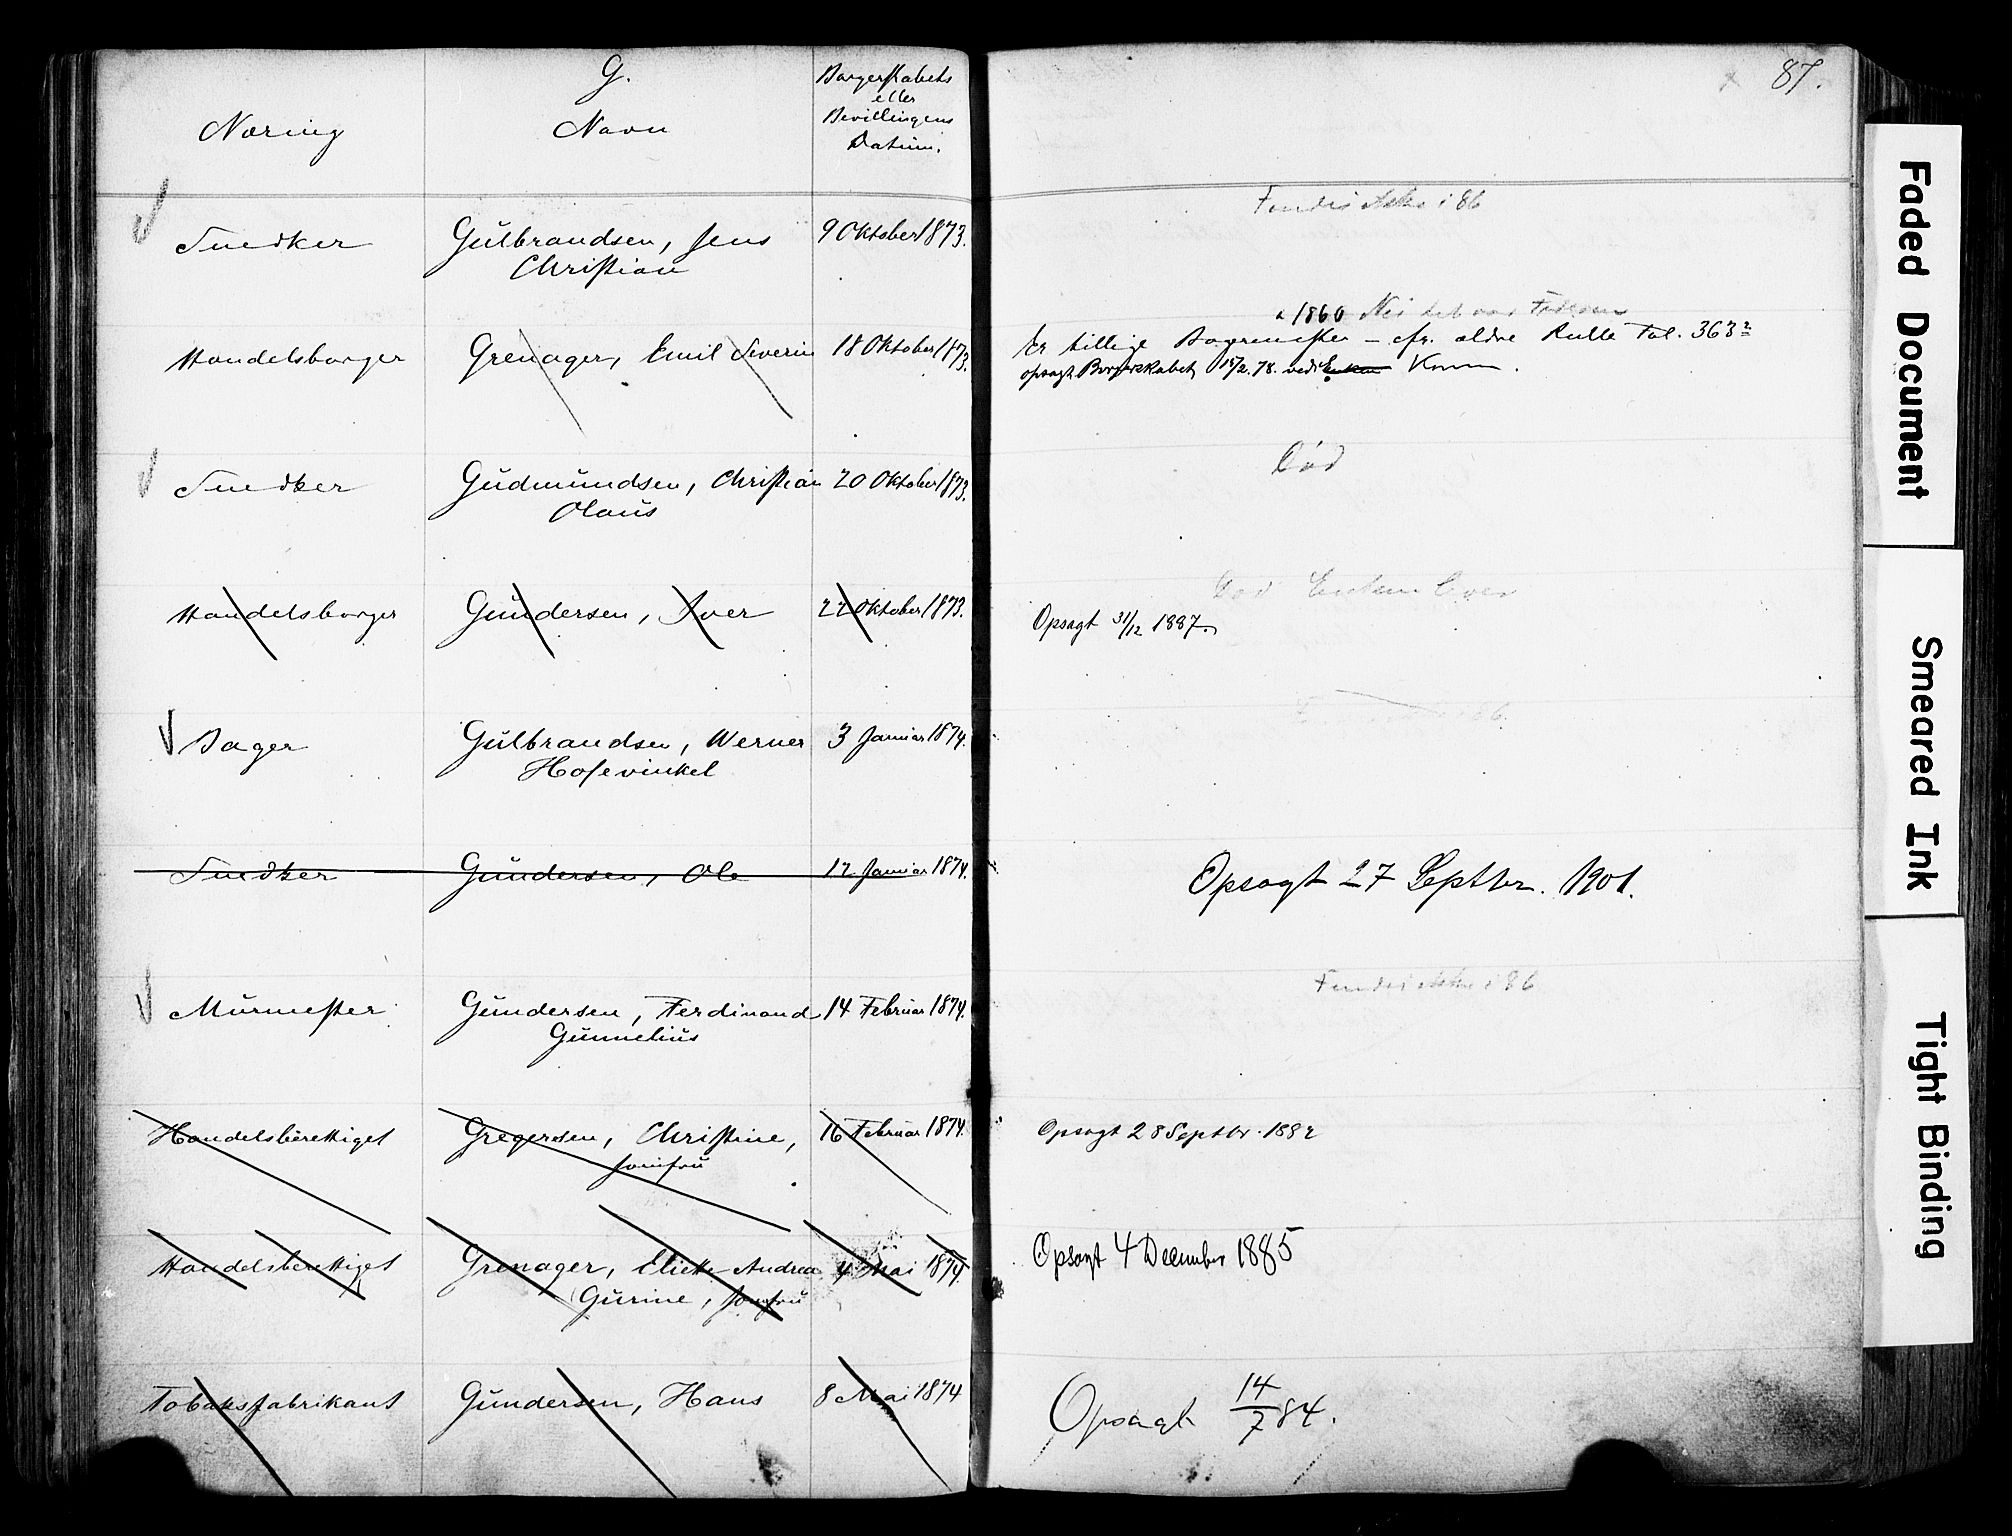 G.
87.
Næring
Navn
Borgerskabets
eller
Bevillingens
Datum.
Findes ikke i 86
Snedker
Gulbrandsen, Jens
Christian
9 Oktober 1873.
1860 Nei det var
Handelsborger
Grenager, Emil Severin
18 Oktober 1873.
Er tillige Bagermester - cfr. ældre Rulle Fol. 363
opsagt Borgerskabet 15/2. 78. ved
Snedker
Gudmundsen, Christian
Olaus
20 Oktober 1873.
Død
Død Enken lever
Handelsborger
Gundersen, Iver
22 Oktober 1873.
Opsagt 31/12 1887.
Bager
Gulbrandsen, Werner
Hosevinkel
3 Januar 1874.
Snedker
Gundersen, Ole
12 Januar 1874.
Opsagt 27 Septbr. 1901.
Findes ikke i 86
Murmester
Gundersen, Ferdinand
Gunnelius
14 Februar 1874.
Handelsberettiget
Gregersen, Christine,
Jomfru
16 Februar 1874.
Opsagt 28 Septbr. 1882
Handelsberettiget
Grenager, Elicke Andrea
Gurine, Jomfru
4 Mai 1874.
Opsagt 4 December 1885
Tobaksfabrikant
Gundersen, Hans
8 Mai 1874
Opsagt 14/7 84.
Faded Document
Smeared Ink
Tight Binding